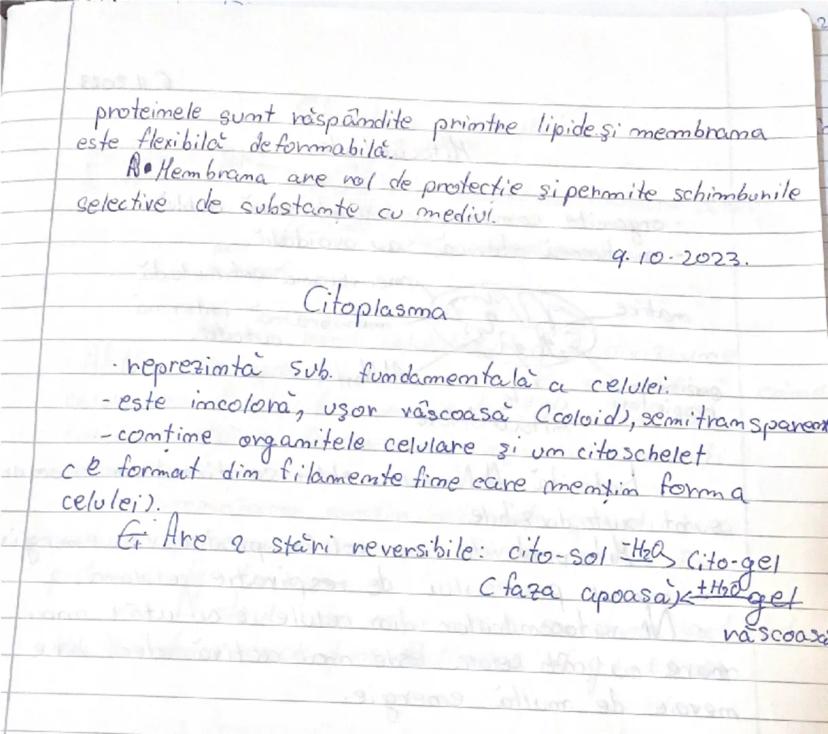 proteinele sunt răspândite printre lipide și membrana
este flexibilă deformabilă.
• Membrana are rol de protecție și permite schimburile
selective de substanțe cu mediul.
9.10.2023.
Citoplasma
- reprezintă sub. fundamentală a celulei.
- este incoloră, ușor vâscoasă (coloid), semitransparen
- conține organitele celulare și un citoschelet
( e format din filamente fine care mențin forma
celulei).
Are 2 stări reversibile: cito-sol -H2O> Cito-gel
(faza apoasă) <+H2O gel
vâscoasă